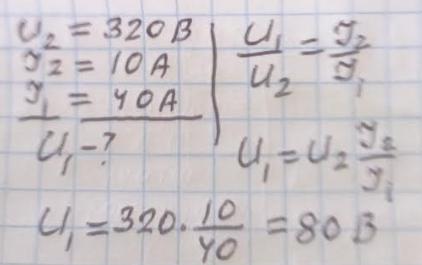 U₂ = 320 В
I₂ = 10 А
I₁ = 40 А
U₁ - ?
U₁/U₂ = I₂/I₁
U₁ = U₂ I₂/I₁
U₁ = 320 · 10/40 = 80 В